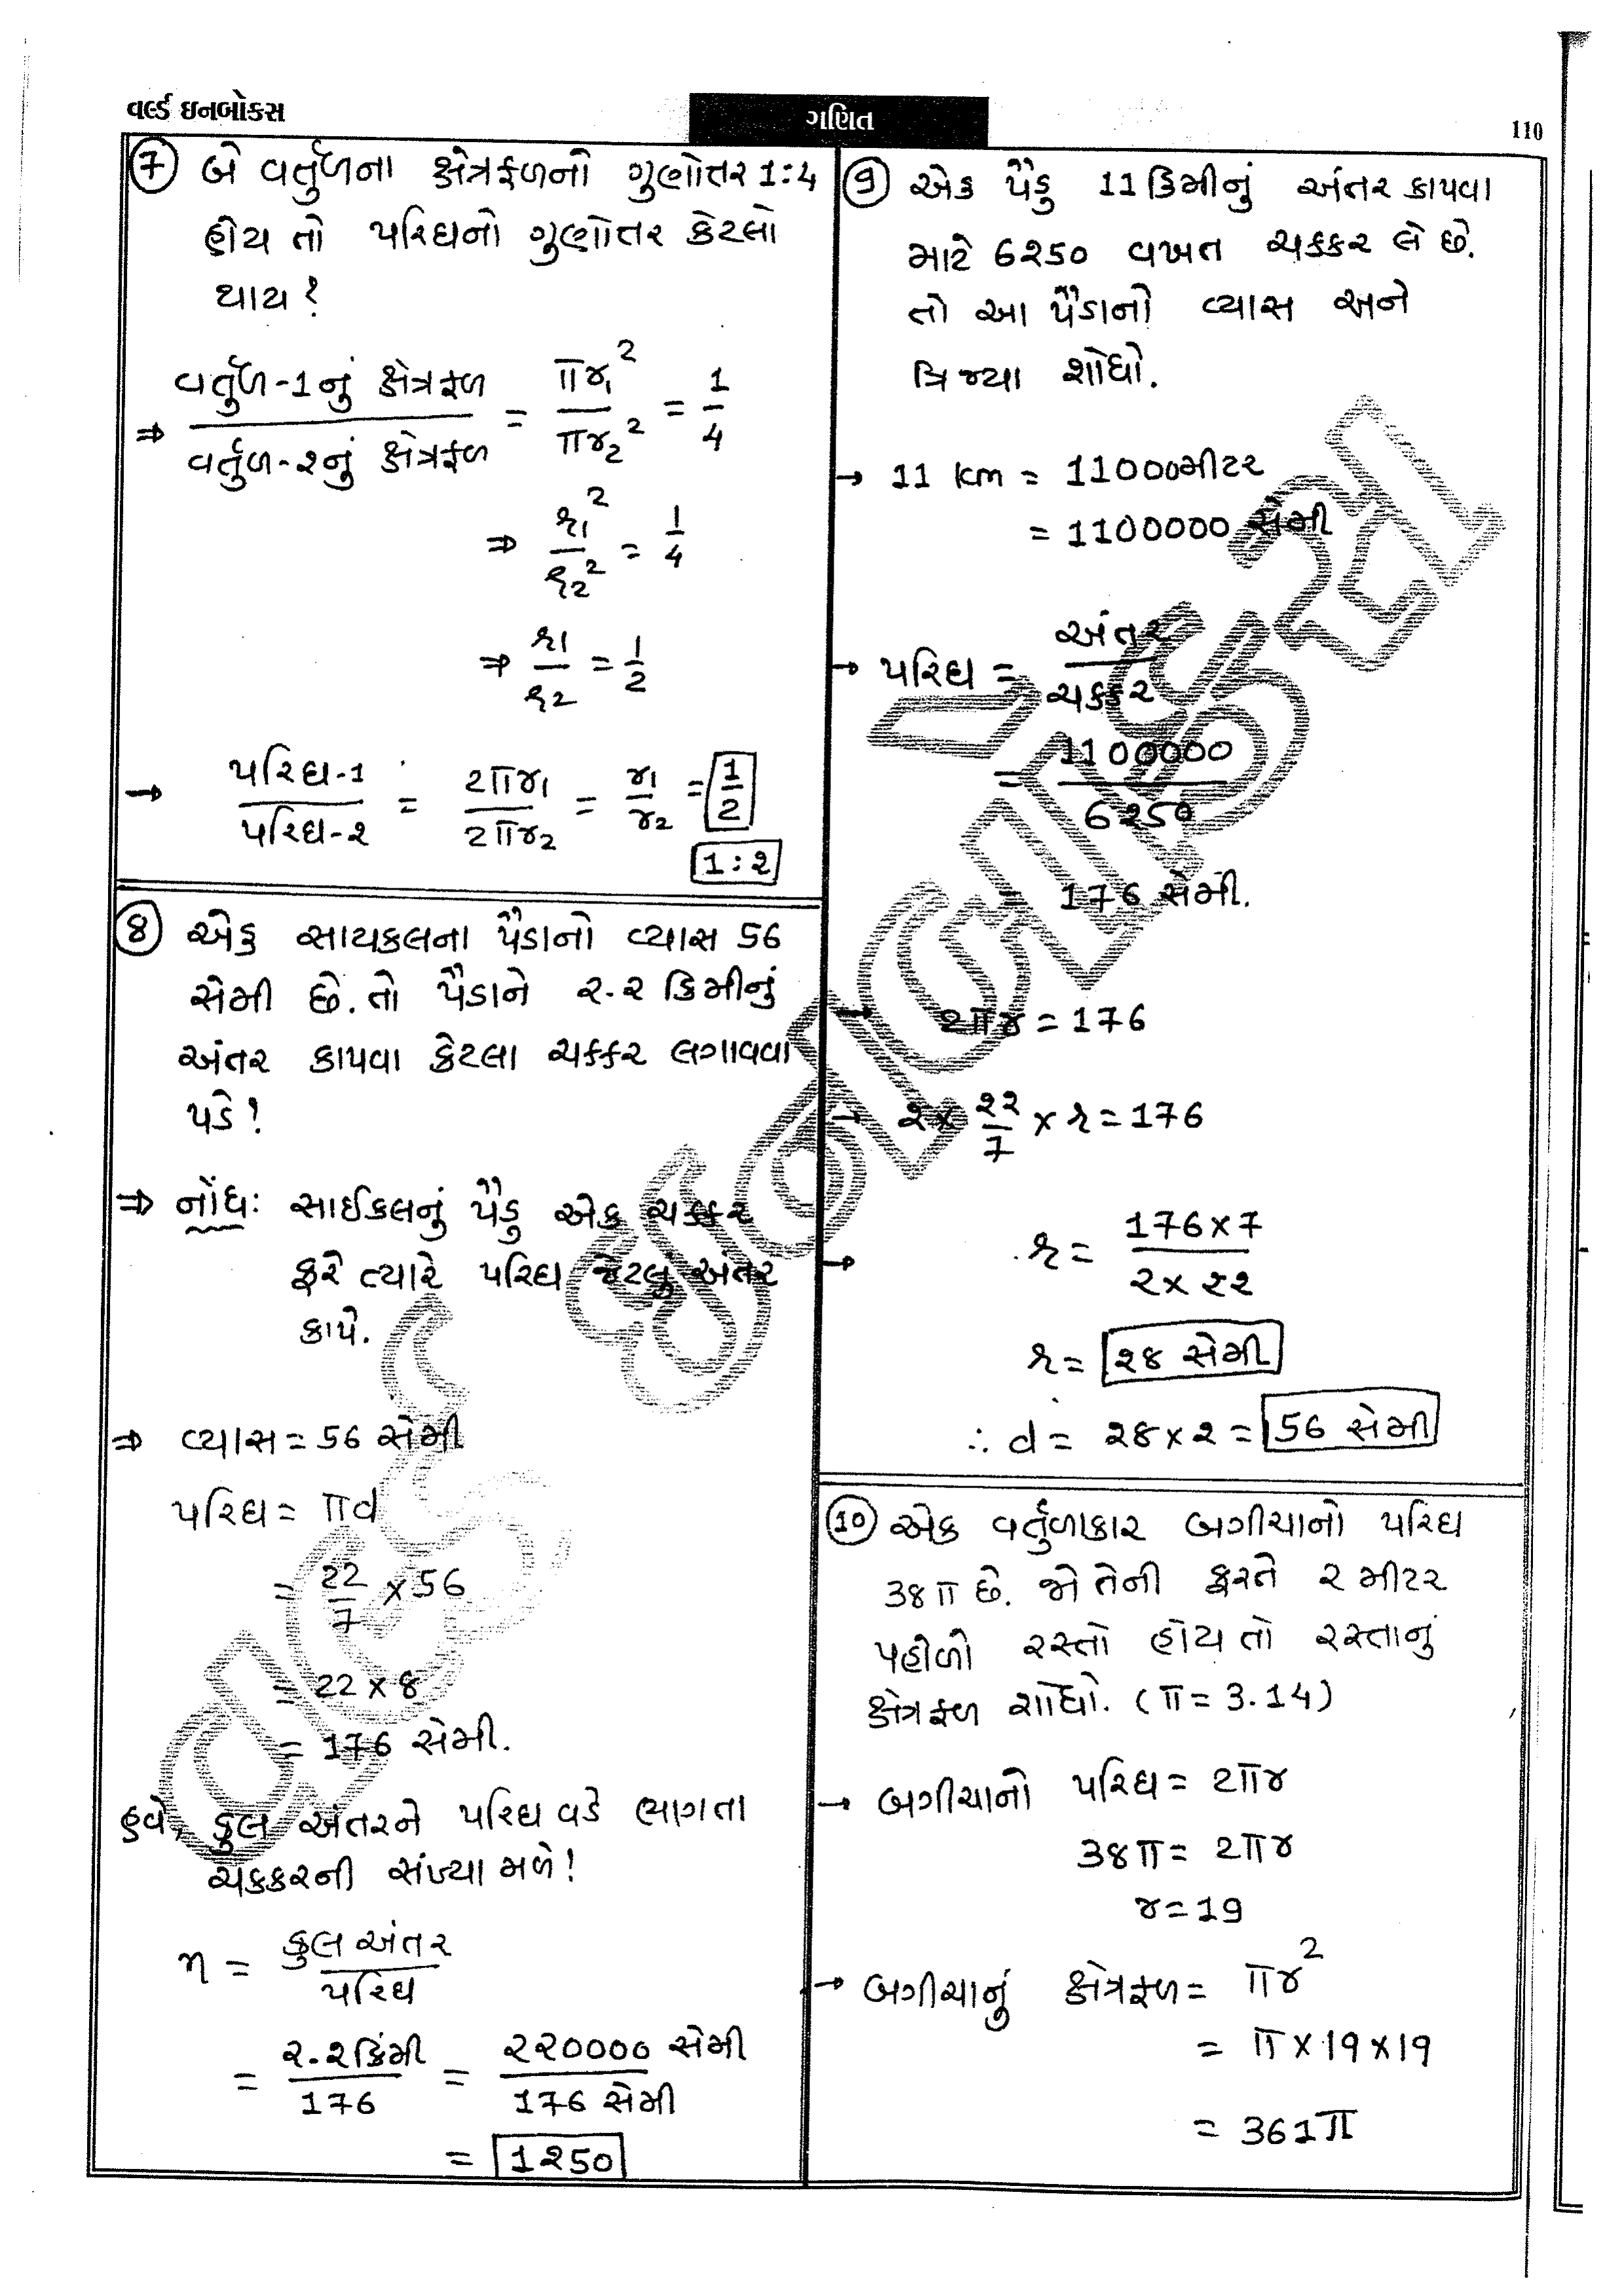 વર્લ્ડ ઇનબોક્સ
ગણિત
110
(7) બે વર્તુળના ક્ષેત્રફળનો ગુણોત્તર 1:4
હોય તો પરિઘનો ગુણોત્તર કેટલો
થાય?
⇒ વર્તુળ-1નું ક્ષેત્રફળ / વર્તુળ-૨નું ક્ષેત્રફળ = πr₁² / πr₂² = 1/4
⇒ r₁² / r₂² = 1/4
⇒ r₁ / r₂ = 1/2
→ પરિઘ-1 / પરિઘ-૨ = 2πr₁ / 2πr₂ = r₁ / r₂ = 1/2
1:૨
(8) એક સાયકલના પૈડાનો વ્યાસ 56
સેમી છે. તો પૈડાને ૨.૨ કિમીનું
અંતર કાપવા કેટલા ચક્કર લગાવવા
પડે!
⇒ નોંધ: સાઈકલનું પૈડુ એક ચક્કર
ફરે ત્યારે પરિઘ જેટલું અંતર
કાપે.
⇒ વ્યાસ = 56 સેમી
પરિઘ = πd
= 22/7 × 56
= 22 × 8
= 176 સેમી.
હવે, કુલ અંતરને પરિઘ વડે ભાગતા
ચક્કરની સંખ્યા મળે!
n = કુલ અંતર / પરિઘ
= ૨.૨ કિમી / 176 = ૨૨0000 સેમી / 176 સેમી
= 1૨50
(9) એક પૈડુ 11 કિમીનું અંતર કાપવા
માટે 6૨50 વખત ચક્કર લે છે.
તો આ પૈડાનો વ્યાસ અને
ત્રિજ્યા શોધો.
→ 11 km = 11000 મીટર
= 1100000 સેમી
→ પરિઘ = અંતર / ચક્કર
= 1100000 / 6૨50
= 176 સેમી.
→ ૨πr = 176
→ ૨ × ૨૨/7 × r = 176
→ r = 176 × 7 / 2 × ૨૨
r = ૨8 સેમી
∴ d = ૨8 × ૨ = 56 સેમી
(10) એક વર્તુળાકાર બગીચાનો પરિઘ
38π છે. જો તેની ફરતે ૨ મીટર
પહોળો રસ્તો હોય તો રસ્તાનું
ક્ષેત્રફળ શોધો. (π = 3.14)
→ બગીચાનો પરિઘ = 2πr
38π = 2πr
r = 19
→ બગીચાનું ક્ષેત્રફળ = πr²
= π × 19 × 19
= 361π